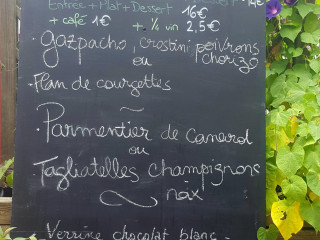 Entrée + Plat + Dessert 16€ 14€
+ café 1€ + ¼ vin 2,5€
• Gazpacho, crostini poivrons
ou chorizo
• Flan de courgettes
~
• Parmentier de canard
ou
• Tagliatelles champignons
noix
Verrine chocolat blanc -